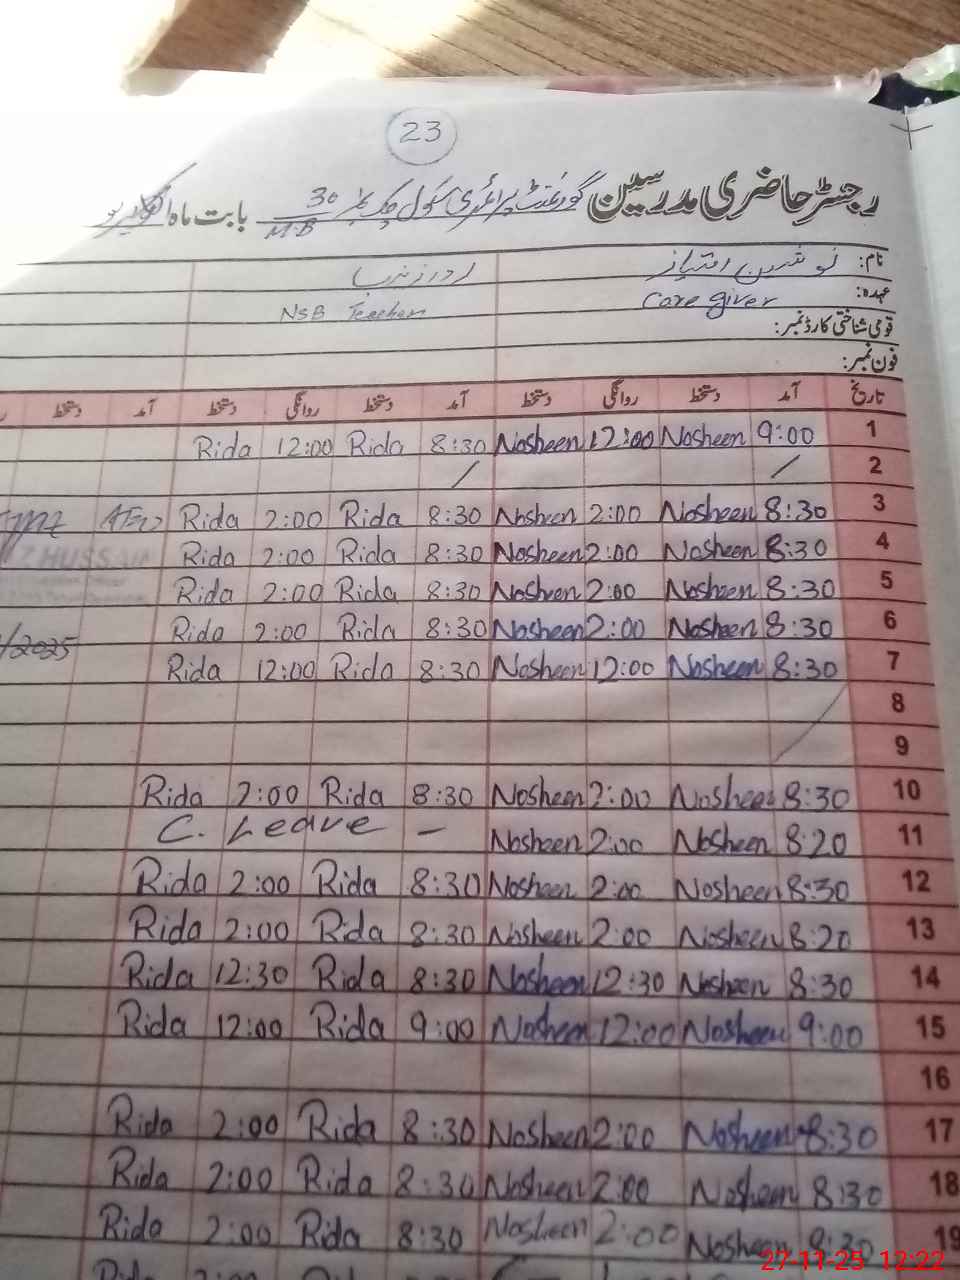 23
رجسٹر حاضری مدرسین گورنمنٹ پرائمری سکول چک نمبر 30 M.B بابت ماہ
نام: نوشین امتیاز
عہدہ: Care giver NSB Teacher
قومی شناختی کارڈ نمبر:
فون نمبر:
تاریخ آمد دستخط روانگی دستخط آمد دستخط روانگی دستخط آمد دستخط
1 9:00 Nosheen 12:00 Nosheen 8:30 Rida 12:00 Rida
2 / /
3 8:30 Nosheen 2:00 Nosheen 8:30 Rida 2:00 Rida
4 8:30 Nosheen 2:00 Nosheen 8:30 Rida 2:00 Rida HUSSAIN
5 8:30 Nosheen 2:00 Nosheen 8:30 Rida 2:00 Rida
6 8:30 Nosheen 2:00 Nosheen 8:30 Rida 2:00 Rida /2025
7 8:30 Nosheen 12:00 Nosheen 8:30 Rida 12:00 Rida
8
9
10 8:30 Nosheen 2:00 Nosheen 8:30 Rida 2:00 Rida
11 8:20 Nosheen 2:00 Nosheen – C. Leave
12 8:30 Nosheen 2:00 Nosheen 8:30 Rida 2:00 Rida
13 8:20 Nosheen 2:00 Nosheen 8:30 Rida 2:00 Rida
14 8:30 Nosheen 12:30 Nosheen 8:30 Rida 12:30 Rida
15 9:00 Nosheen 12:00 Nosheen 9:00 Rida 12:00 Rida
16
17 8:30 Nosheen 2:00 Nosheen 8:30 Rida 2:00 Rida
18 8:30 Nosheen 2:00 Nosheen 8:30 Rida 2:00 Rida
19 8:30 Nosheen 2:00 Nosheen 8:30 Rida 2:00 Rida
27-11-25 12:22